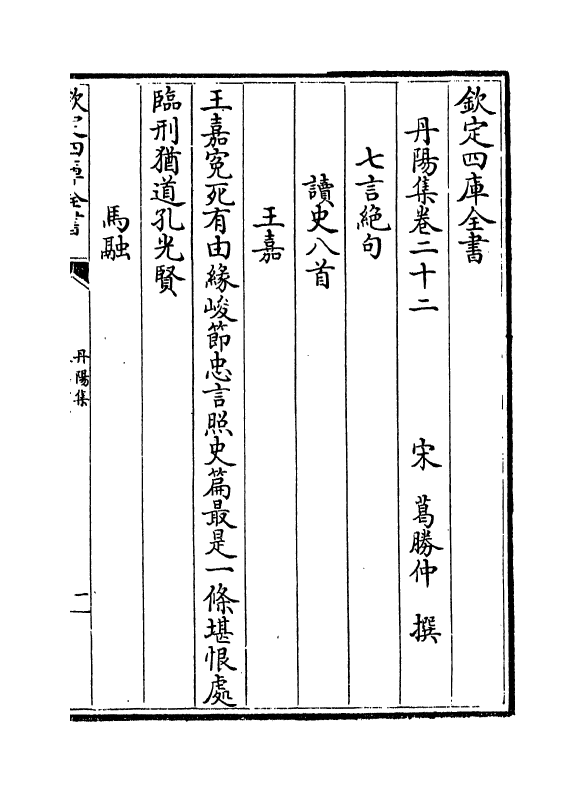 欽定四庫全書
丹陽集卷二十二
宋 葛勝仲 撰
七言絕句
讀史八首
王嘉
王嘉寃死有由緣峻節忠言照史篇最是一條堪恨處
臨刑猶道孔光賢
馬融
欽定四庫全書
丹陽集